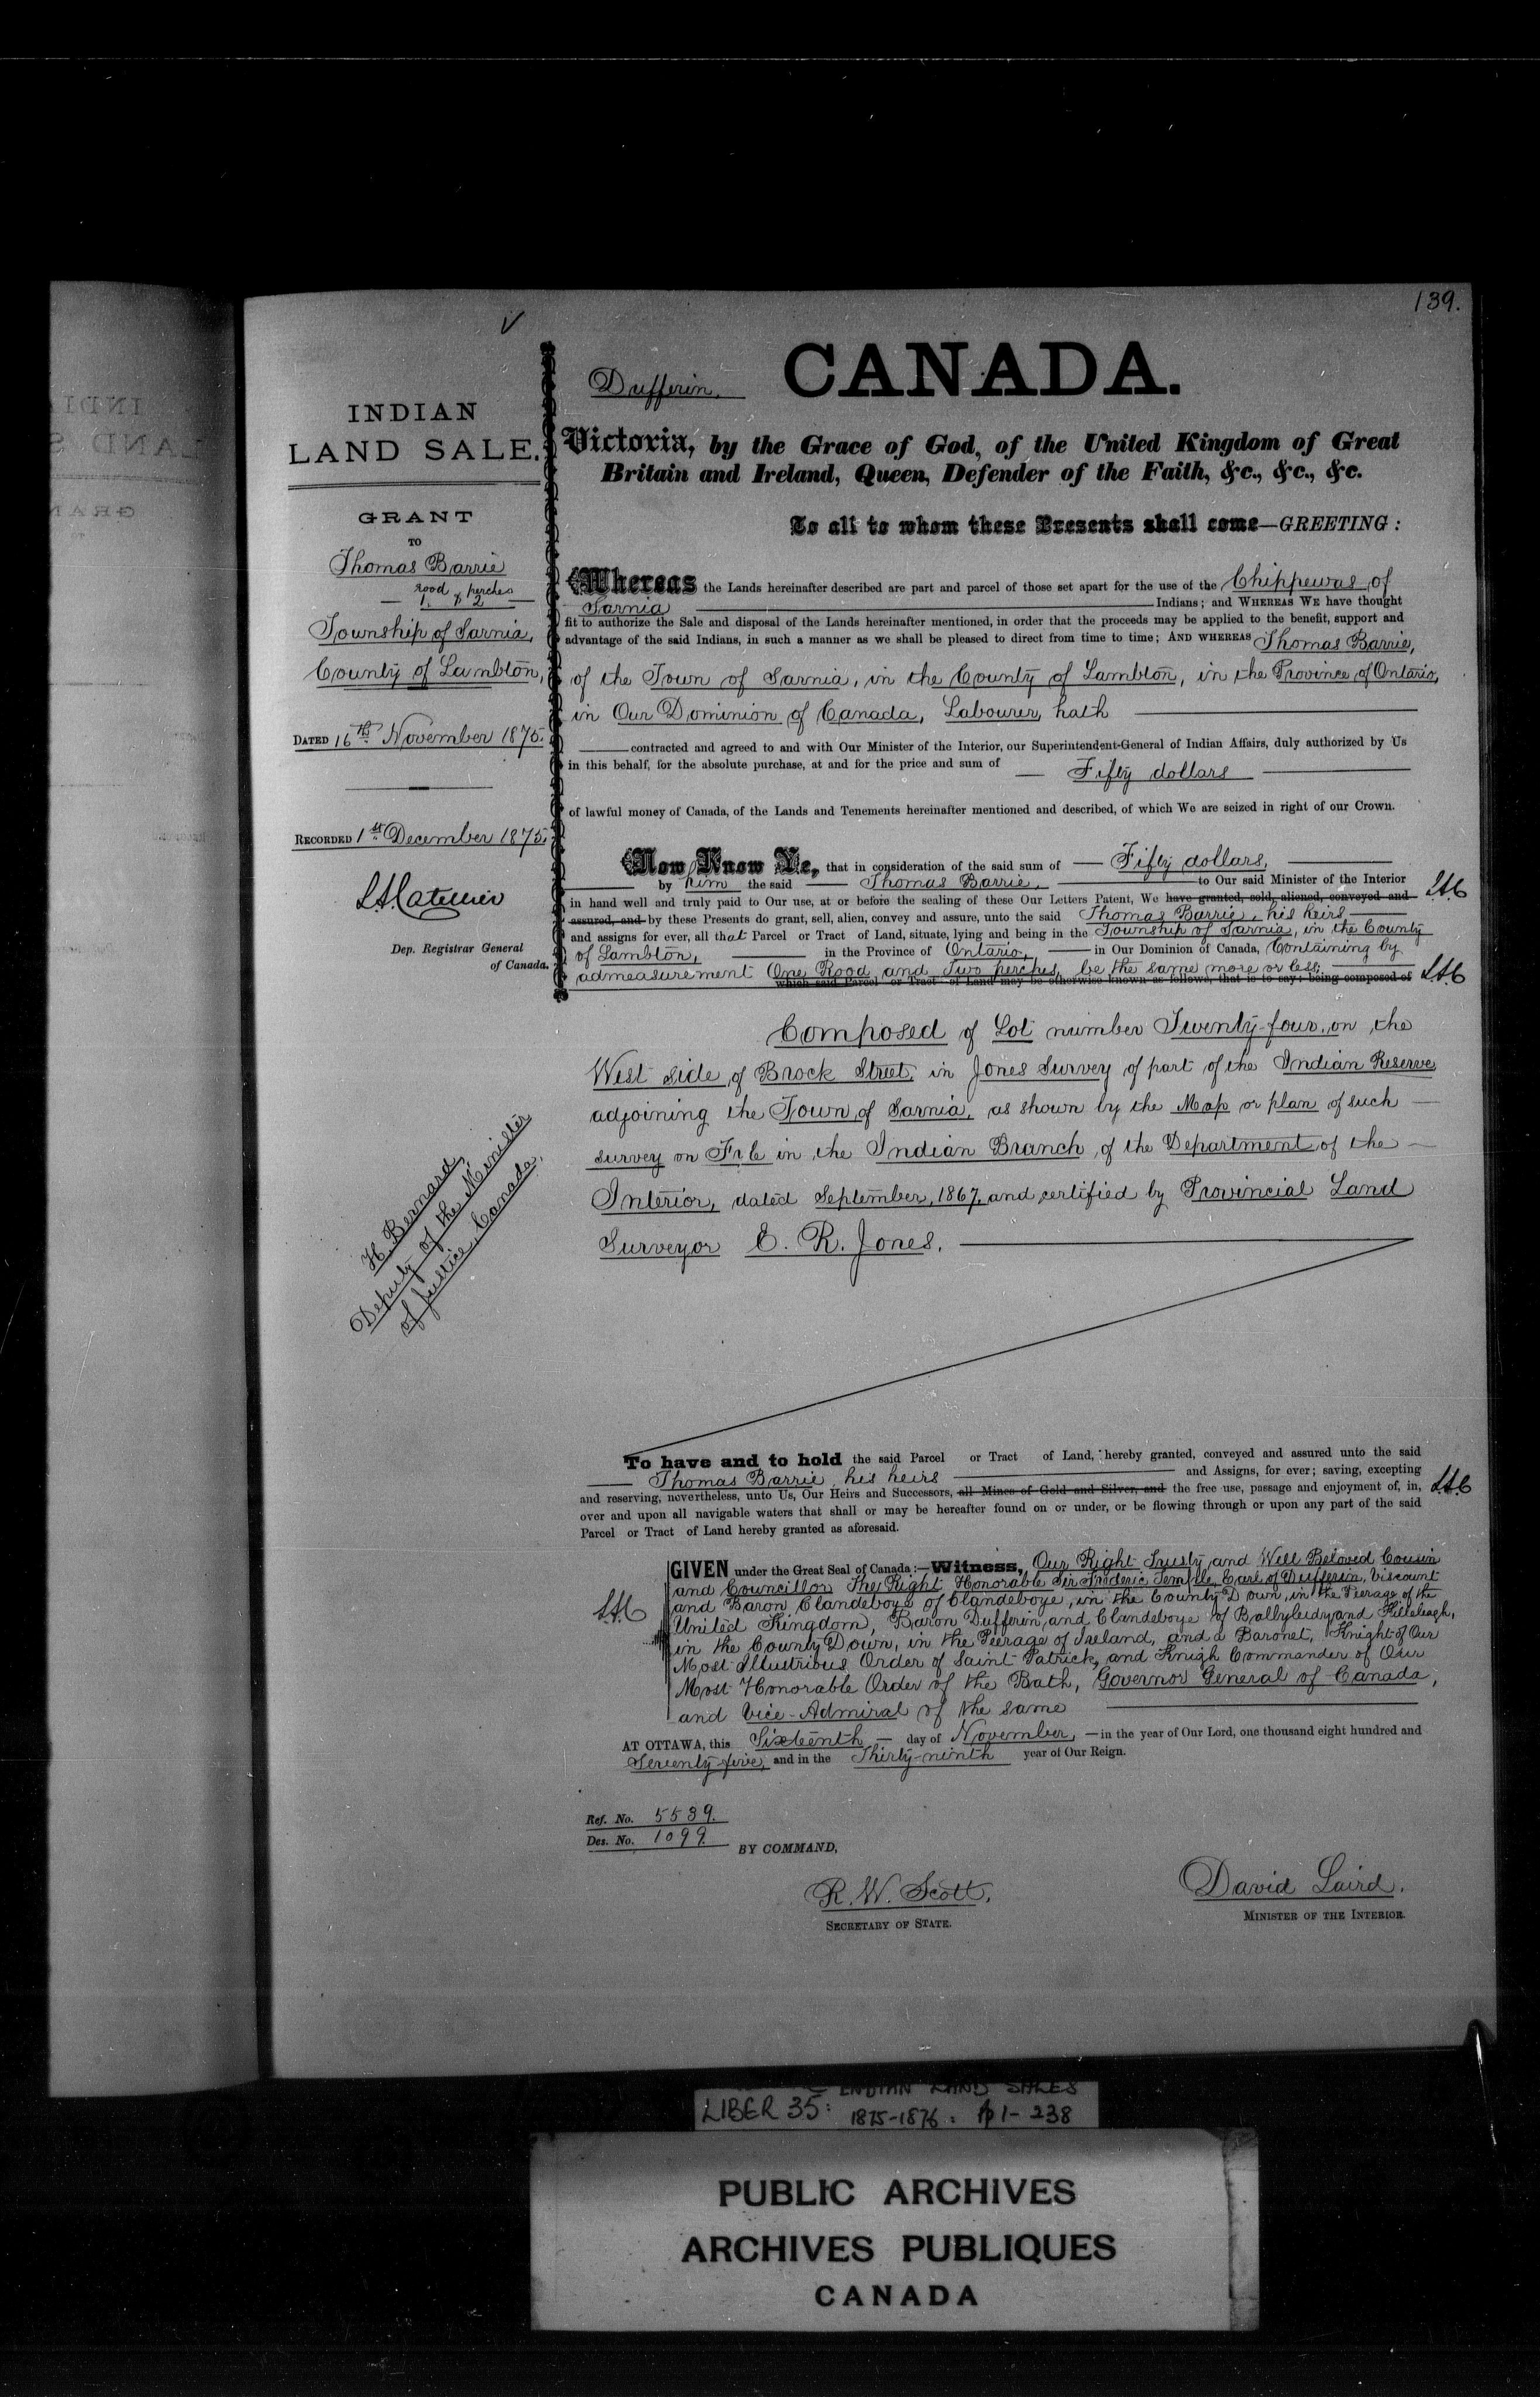 139.
INDIAN
LAND SALE.
GRANT
TO
Thomas Barrie
rood perches
1. & 2
Township of Sarnia,
County of Lambton,
DATED 16th November 1875.
RECORDED 1st December 1875.
Dep. Registrar General
of Canada.
H. Bernard,
Deputy of the Minister
of Justice, Canada.
Dufferin.
CANADA.
Victoria, by the Grace of God, of the United Kingdom of Great
Britain and Ireland, Queen, Defender of the Faith, &c., &c., &c.
To all to whom these Presents shall come—GREETING:
Whereas the Lands hereinafter described are part and parcel of those set apart for the use of the Chippewas of
Sarnia Indians; and WHEREAS WE have thought
fit to authorize the Sale and disposal of the Lands hereinafter mentioned, in order that the proceeds may be applied to the benefit, support and
advantage of the said Indians, in such a manner as we shall be pleased to direct from time to time; AND WHEREAS Thomas Barrie,
of the Town of Sarnia, in the County of Lambton, in the Province of Ontario,
in Our Dominion of Canada, Labourer, hath
contracted and agreed to and with Our Minister of the Interior, our Superintendent-General of Indian Affairs, duly authorized by Us
in this behalf, for the absolute purchase, at and for the price and sum of Fifty dollars
of lawful money of Canada, of the Lands and Tenements hereinafter mentioned and described, of which We are seized in right of our Crown.
Now Know Ye, that in consideration of the said sum of Fifty dollars,
by him the said Thomas Barrie, to Our said Minister of the Interior
in hand well and truly paid to Our use, at or before the sealing of these Our Letters Patent, We have granted, sold, aliened, conveyed and
assured, and by these Presents do grant, sell, alien, convey and assure, unto the said Thomas Barrie, his heirs
and assigns for ever, all that Parcel or Tract of Land, situate, lying and being in the Township of Sarnia, in the County
of Lambton, in the Province of Ontario, in Our Dominion of Canada, Containing by
admeasurement One Rood and Two perches, be the same more or less:
which said Parcel or Tract of Land may be otherwise known as follows, that is to say: being composed of
Composed of Lot number Twenty-four, on the
West side of Brock Street, in Jones Survey of part of the Indian Reserve
adjoining the Town of Sarnia, as shown by the Map or plan of such
survey on File in the Indian Branch, of the Department of the
Interior, dated September, 1867, and certified by Provincial Land
Surveyor E. R. Jones.
To have and to hold the said Parcel or Tract of Land, hereby granted, conveyed and assured unto the said
Thomas Barrie, his heirs and Assigns, for ever; saving, excepting
and reserving, nevertheless, unto Us, Our Heirs and Successors, all Mines of Gold and Silver, and the free use, passage and enjoyment of, in,
over and upon all navigable waters that shall or may be hereafter found on or under, or be flowing through or upon any part of the said
Parcel or Tract of Land hereby granted as aforesaid.
GIVEN under the Great Seal of Canada:—Witness, Our Right Trusty and Well Beloved Cousin
and Councillor The Right Honorable Sir Frederic Temple, Earl of Dufferin, Viscount
and Baron Clandeboye of Clandeboye, in the County Down, in the Peerage of the
United Kingdom, Baron Dufferin and Clandeboye of Ballyleidy and Killeleagh,
in the County Down, in the Peerage of Ireland, and a Baronet, Knight of Our
Most Illustrious Order of Saint Patrick, and Knigh Commander of Our
Most Honorable Order of the Bath, Governor General of Canada,
and Vice-Admiral of the same
AT OTTAWA, this Sixteenth day of November, in the year of Our Lord, one thousand eight hundred and
Seventy-five, and in the Thirty-ninth year of Our Reign.
Ref. No. 5539.
Des. No. 1099.
BY COMMAND,
R. W. Scott.
SECRETARY OF STATE.
David Laird.
MINISTER OF THE INTERIOR.
INDIAN LAND SALES
LIBER 35: 1875-1876: pp 1-238
PUBLIC ARCHIVES
ARCHIVES PUBLIQUES
CANADA